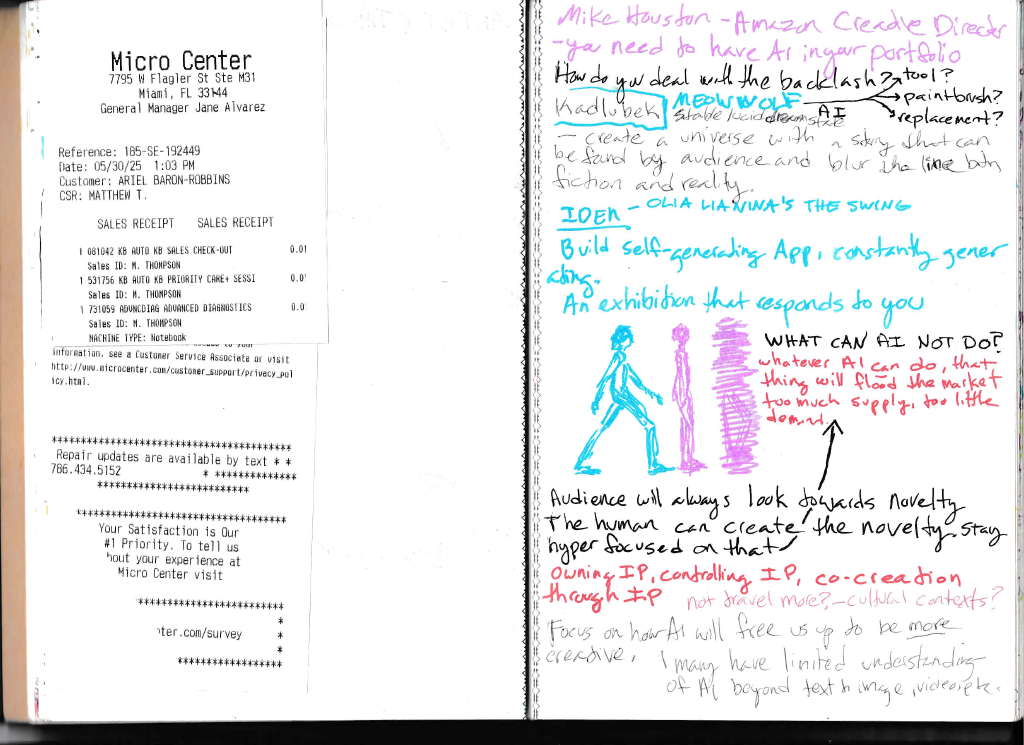 Micro Center
7795 W Flagler St Ste M31
Miami, FL 33144
General Manager Jane Alvarez
Reference: 185-SE-192449
Date: 05/30/25 1:03 PM
Customer: ARIEL BARON-ROBBINS
CSR: MATTHEW T.
SALES RECEIPT SALES RECEIPT
1 081042 KB AUTO KB SALES CHECK-OUT 0.01
Sales ID: M. THOMPSON
1 531756 KB AUTO KB PRIORITY CARE+ SESSI 0.0
Sales ID: M. THOMPSON
1 731059 ADVNCDIAG ADVANCED DIAGNOSTICS 0.0
Sales ID: M. THOMPSON
MACHINE TYPE: Notebook
information, see a Customer Service Associate or visit
http://www.microcenter.com/customer_support/privacy_pol
icy.html.
*****************************************
Repair updates are available by text * *
786.434.5152 * **************
**************************
************************************
Your Satisfaction is Our
#1 Priority. To tell us
bout your experience at
Micro Center visit
*************************
*
ter.com/survey *
*
******************
Mike Houston - Amazon Creative Director
- you need to have AI in your portfolio
How do you deal with the backlash? tool?
Kadlubek MEOW WOLF AI paintbrush?
stable/lucid dream state replacement?
- create a universe with a story that can
be found by audience and blur the line btn
fiction and reality.
IDEA - OLIA LIANINA'S THE SWING
Build self-generating App, constantly gener
ating.
An exhibition that responds to you
WHAT CAN AI NOT DO?
whatever AI can do, that
thing will flood the market
too much supply, too little
demand.
Audience will always look towards novelty
The human can create the novelty. Stay
hyper focused on that
Owning IP, controlling IP, co-creation
through IP not travel more? - cultural contexts?
Focus on how AI will free us up to be more
creative. many have limited understanding
of AI beyond text to image, video, etc.